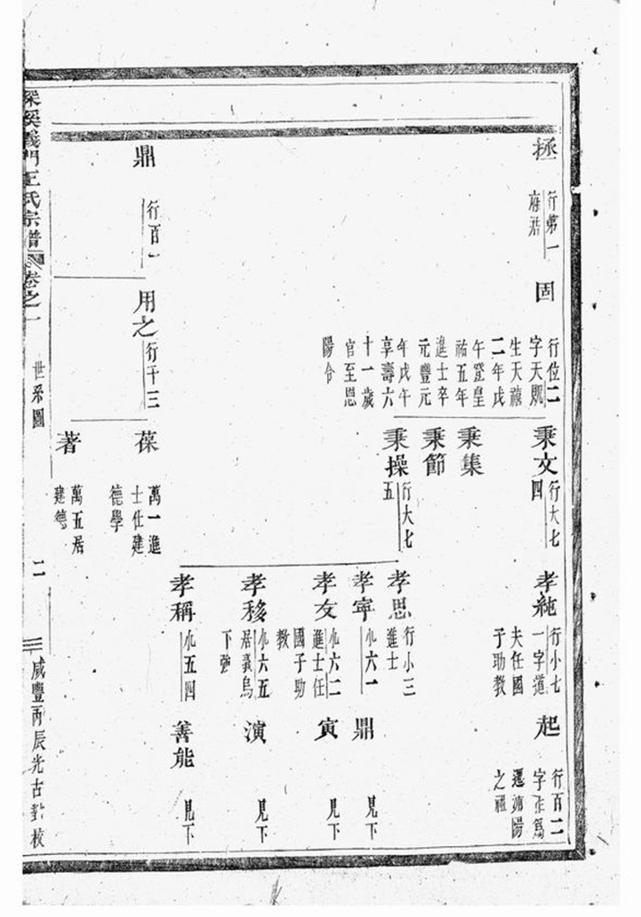 極
行第一
府君
固
行位二
字天貺
生天禧
二年戊
午登皇
祐五年
進士卒
元豐元
年戊午
享壽六
十一歲
官至恩
陽令
秉文
行大七
四
秉集
秉節
秉操
行大七
五
孝純
行小七
一字道
夫任國
子助教
孝思
行小三
進士
孝寧
小六一
孝友
小六二
進士任
國子助
教
孝移
小六五
居義烏
下強
孝稱
小五四
起
行百二
字作為
遷
陽
之祖
鼎
見下
寅
見下
演
見下
善能
見下
鼎
行百一
用之
行千三
葆
萬一進
士仕建
德學
著
萬五居
建德
深溪義門王氏宗譜
卷之一
世系圖
二
咸豐丙辰光古
校